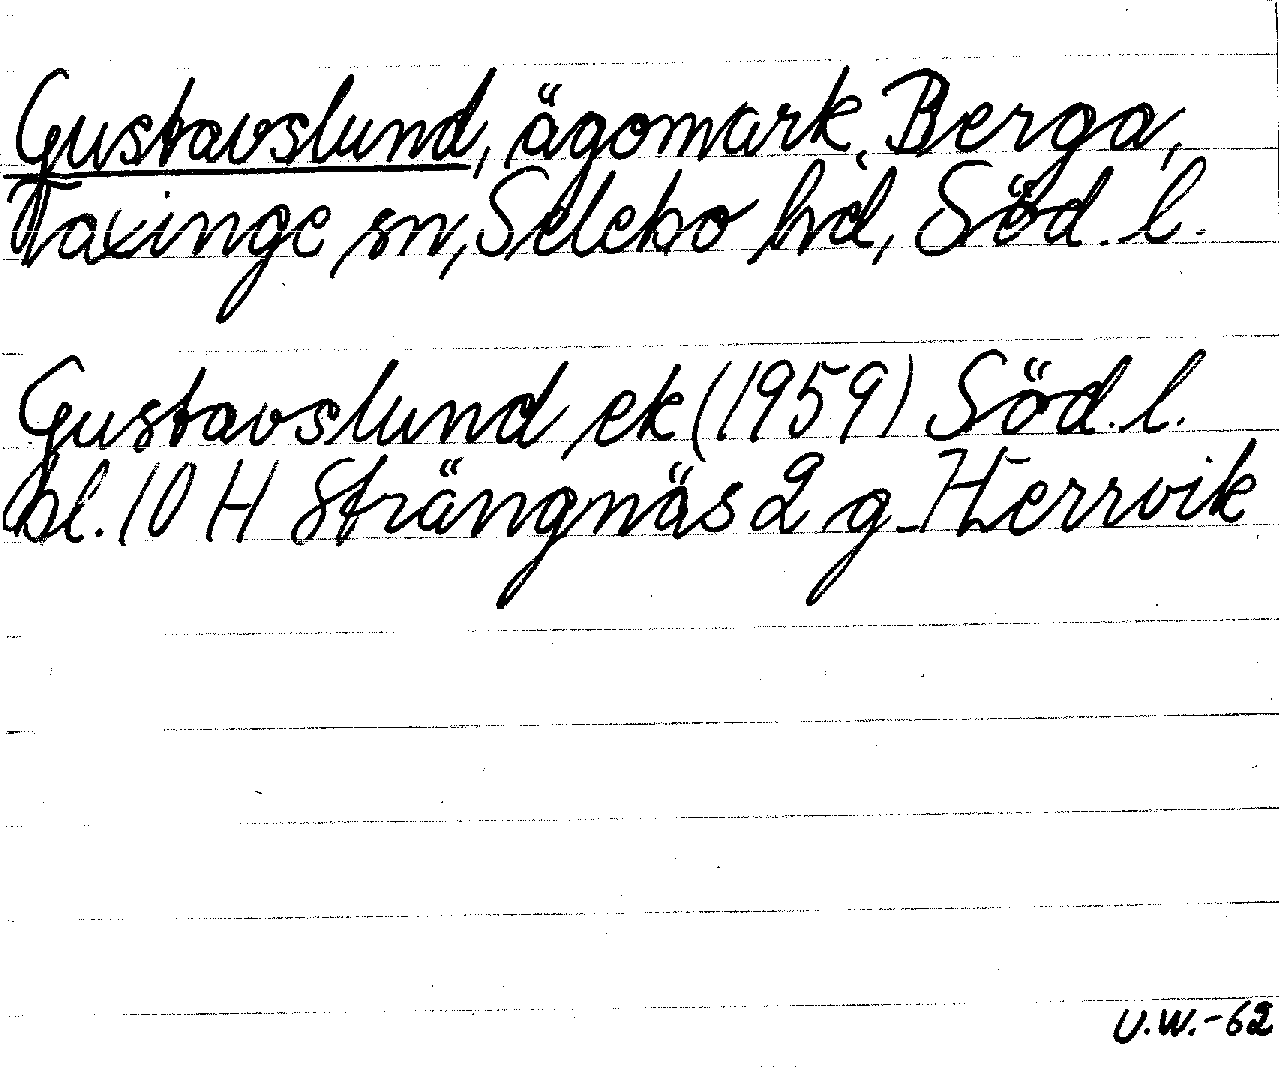 Gustavslund, ägomark, Berga,
Taxinge sn, Selebo hd, Söd. l.
Gustavslund ek (1959) Söd. l.
bl. 10 H Strängnäs 2 g Herrvik
U.W.-62